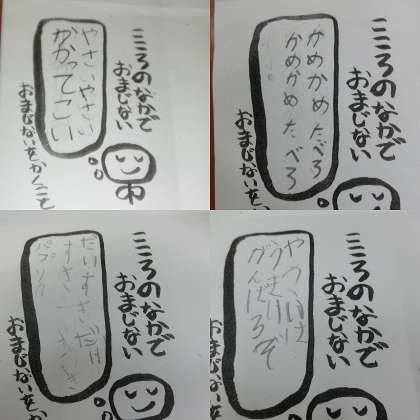 こころのなかで
おまじない
やさいやさい
かかってこい
おまじないをかくこと
こころのなかで
おまじない
かめかめ たべろ
かめかめ たべろ
おまじないを
こころのなかで
おまじない
だいすき だけ
パプリカ
おまじないをか
こころのなかで
おまじない
がんばろぞ
おまじないを